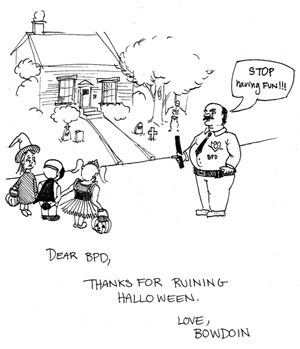 STOP
having FUN!!!
BPD
DEAR BPD,
THANKS FOR RUINING
HALLOWEEN.
LOVE,
BOWDOIN